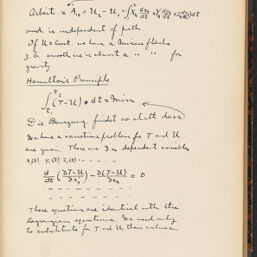 Arbeit = A₁₀ = U₂ - U₁ = ∫ dt
and is independent of path
If U = const. we have a
3. is about a " " for
gravity
Hamilton's Principle
∫ (T-U) dt = Min
Die Bewegung findet so statt dass
We have a variations problem for T and U
are given. There are 3n dependent variables
x₁(t) y₁(t) z₁(t) - - - -
d/dt (∂T-U/∂ẋₖ) - ∂(T-U)/∂xₖ = 0
- - - - - - - -
- - - - - - - -
These equations are identical with the
Lagrangian equations. We need only
to substitute for T and U their values